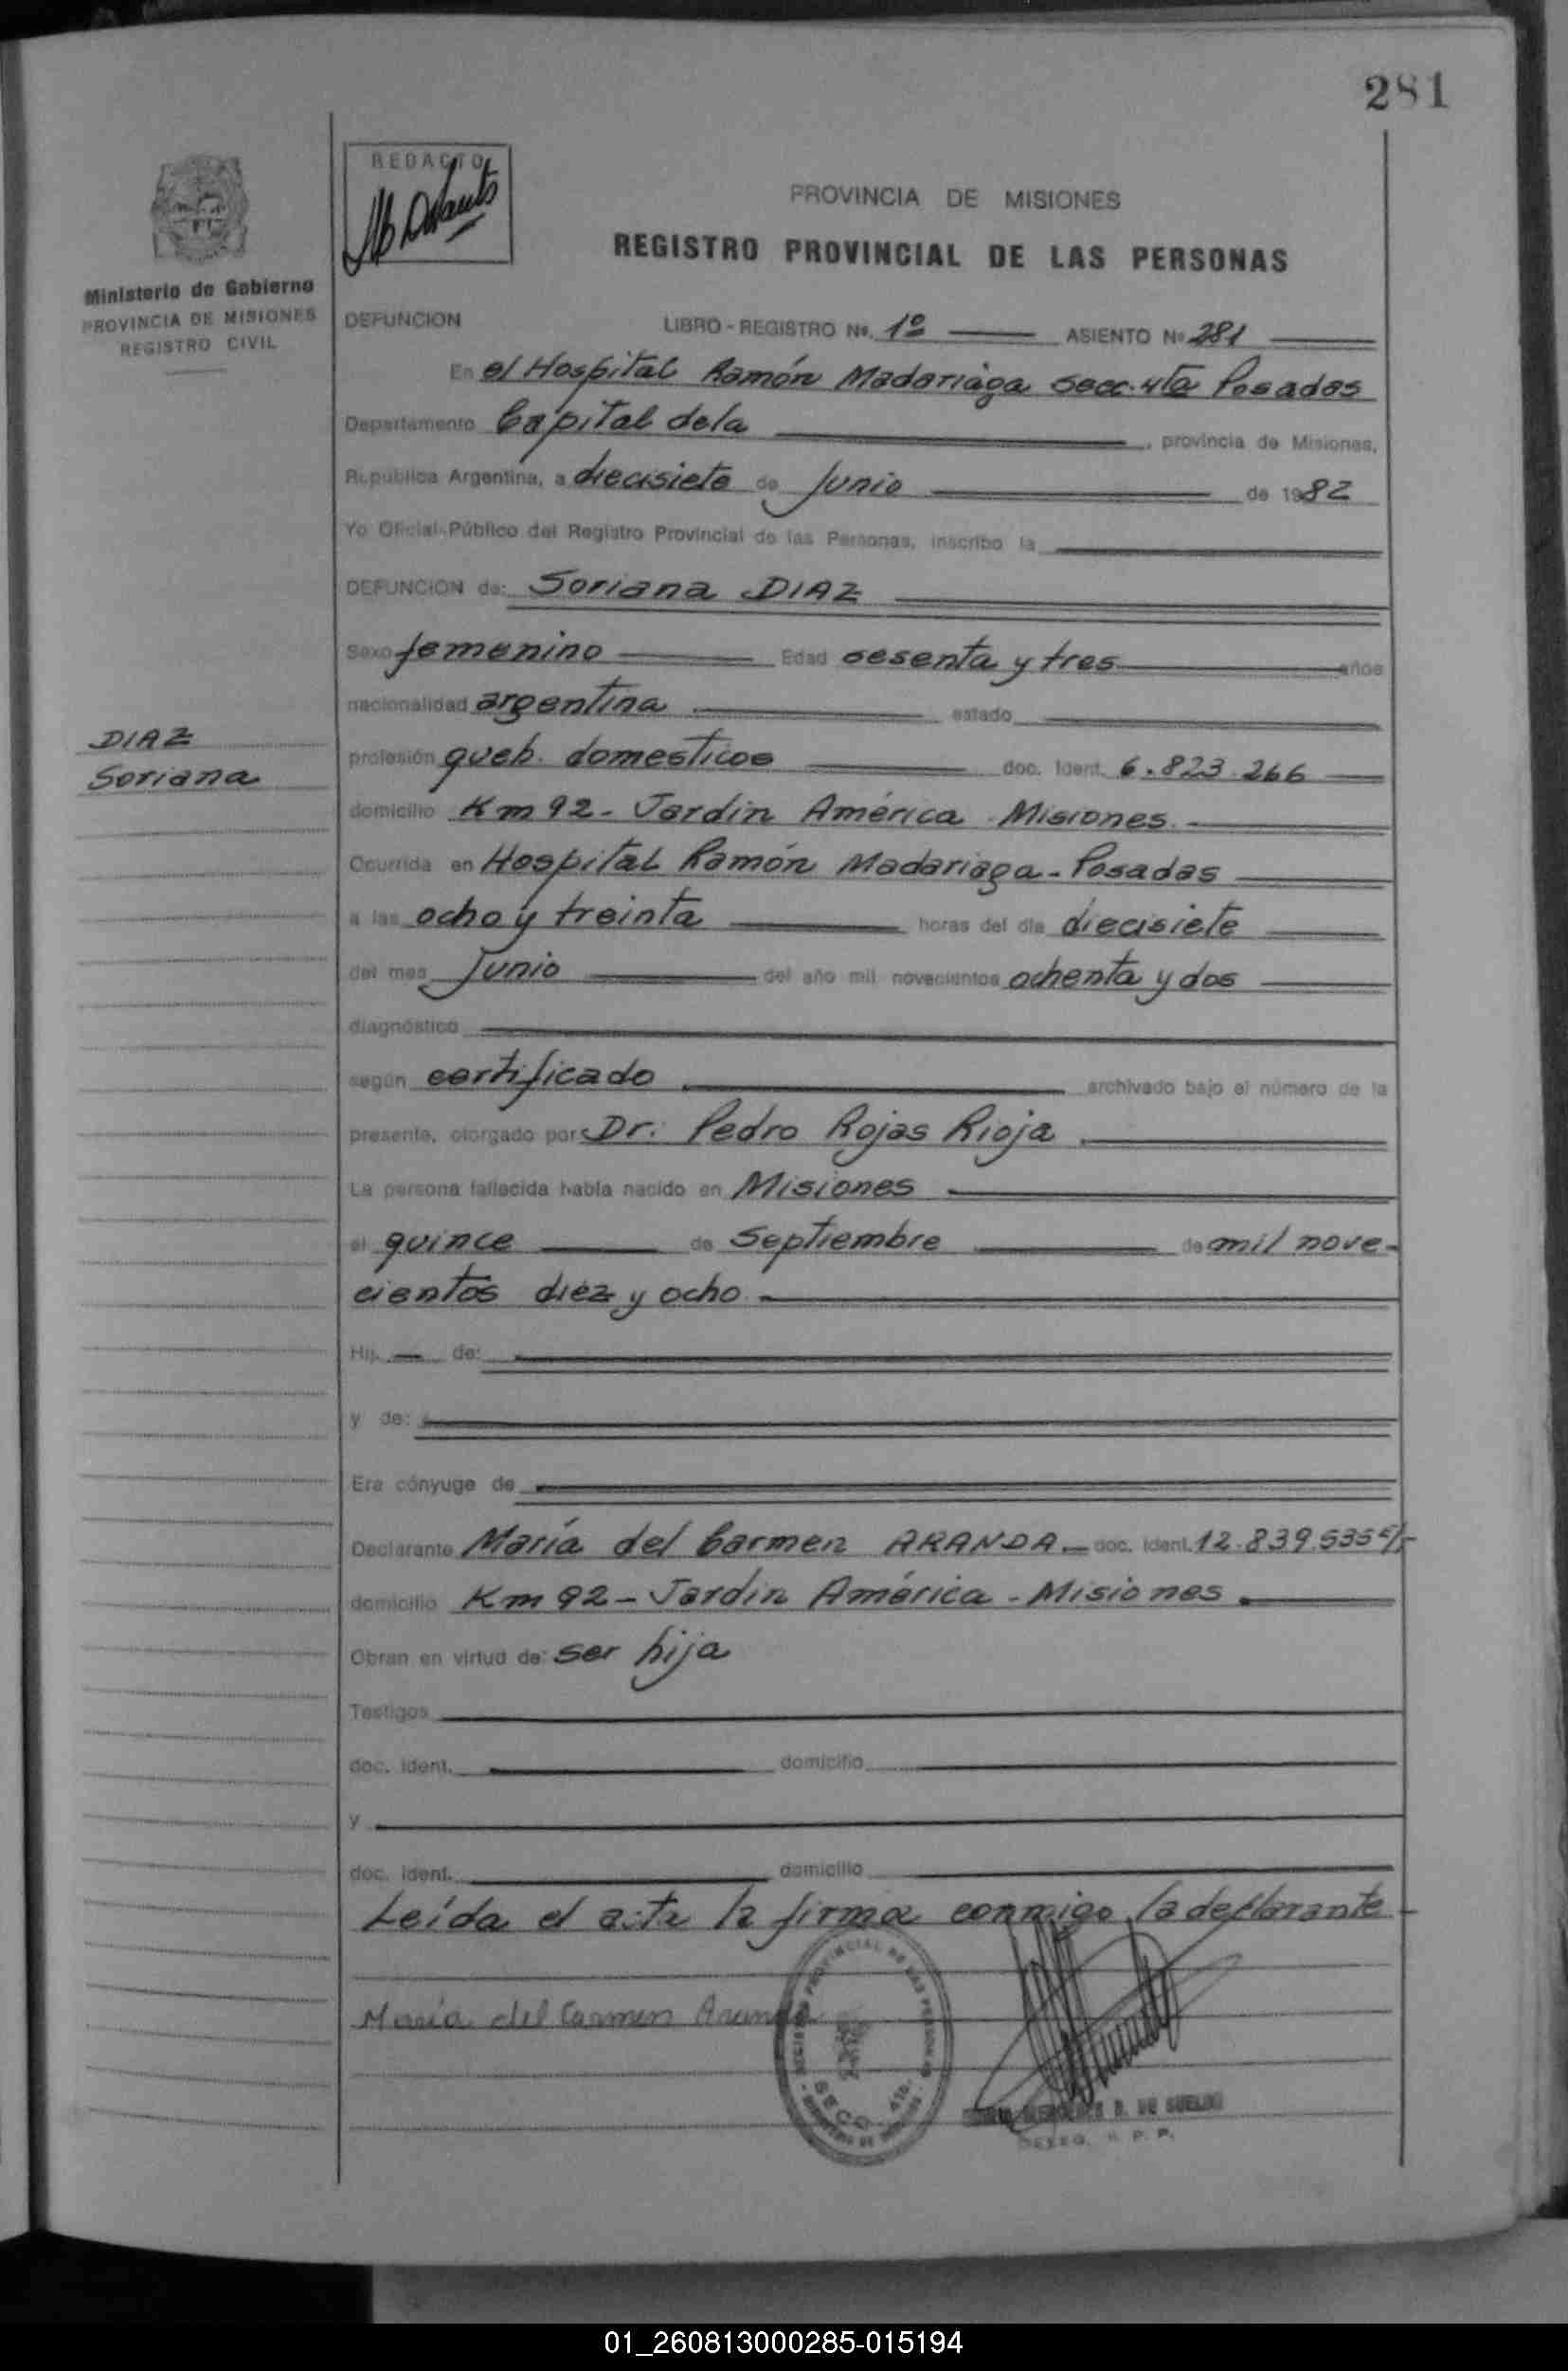 281
REDACTO
PROVINCIA DE MISIONES
REGISTRO PROVINCIAL DE LAS PERSONAS
Ministerio de Gobierno
PROVINCIA DE MISIONES
REGISTRO CIVIL
DEFUNCION LIBRO - REGISTRO Nº. 1º ASIENTO Nº 281
En el Hospital Ramón Madariaga Secc. 4ta Posadas
Departamento Capital de la , provincia de Misiones,
República Argentina, a diecisiete de Junio de 1982
Yo Oficial Público del Registro Provincial de las Personas, inscribo la
DEFUNCION de: Soriana DIAZ
Sexo femenino Edad sesenta y tres años
nacionalidad argentina estado
DIAZ
Soriana
profesión queh. domesticos doc. Ident. 6.823.266
domicilio Km 92 - Jardin América Misiones.
Ocurrida en Hospital Ramón Madariaga - Posadas
a las ocho y treinta horas del día diecisiete
del mes Junio del año mil novecientos ochenta y dos
diagnóstico
según certificado archivado bajo el número de la
presente, otorgado por Dr. Pedro Rojas Rioja
La persona fallecida había nacido en Misiones
el quince de Septiembre de mil nove-
cientos diez y ocho.
Hij. de:
y de:
Era cónyuge de
Declarante María del Carmen ARANDA. doc. ident. 12.839.535
domicilio Km 92 - Jardin América - Misiones.
Obran en virtud de: ser hija
Testigos
doc. ident. domicilio
y
doc. ident. domicilio
Leída el acta la firma conmigo la declarante
María del Carmen Aranda
REGISTRO PROVINCIAL DE LAS PERSONAS
SECC. 4ta.
B. DE
R. P. P.
01_260813000285-015194